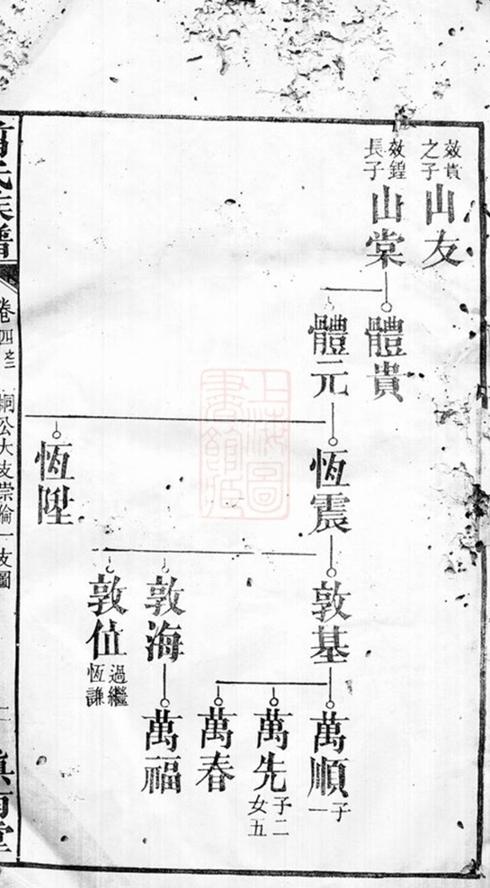 效貴之子
山友
效鍠長子
山棠
體貴
體元
恆震
恆陞
敦基
敦海
敦值
過繼恆謙
萬順
子一
萬先
子二女五
萬春
萬福
氏族譜
卷四之二
公大支崇倫一支圖